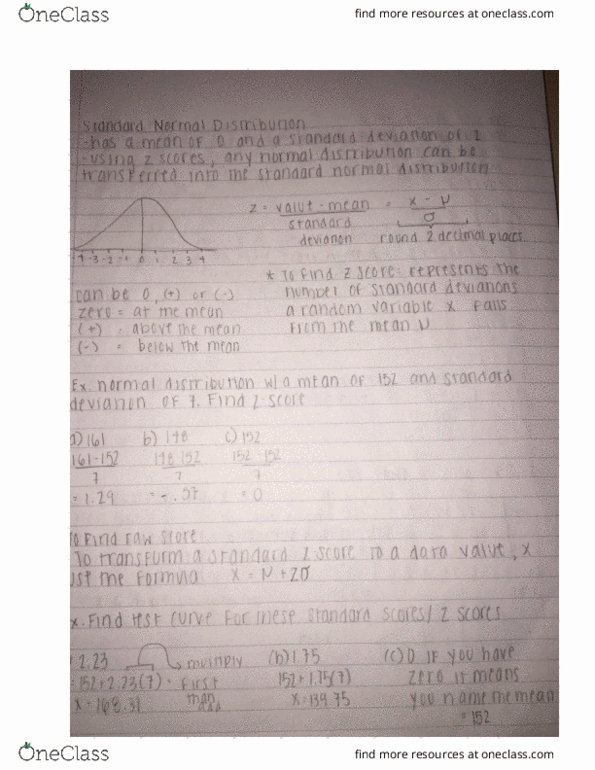 OneClass
find more resources at oneclass.com
Standard Normal Distribution
-has a mean of 0 and a standard deviation of 1
-using z scores, any normal distribution can be
transferred into the standard normal distribution
z = value - mean = x - μ
standard deviation σ
round 2 decimal places
-4 -3 -2 -1 0 1 2 3 4
* To find z score: represents the
number of standard deviations
a random variable x falls
from the mean μ
can be 0, (+) or (-)
zero = at the mean
(+) = above the mean
(-) = below the mean
Ex. normal distribution w/a mean of 152 and standard
deviation of 7. Find z score
a) 161 b) 148 c) 152
161-152 148-152 152-152
7 7 7
= 1.29 = -.57 = 0
To find raw score
To transform a standard z score to a data value, x
use the formula x = μ + zσ
x. Find test curve for these standard scores/z scores
2.23 multiply (b) 1.75 (c) 0 if you have
=152+2.23(7) first 152+1.75(7) zero it means
x=168.31 than add x=139.75 you name the mean
=152
OneClass
find more resources at oneclass.com